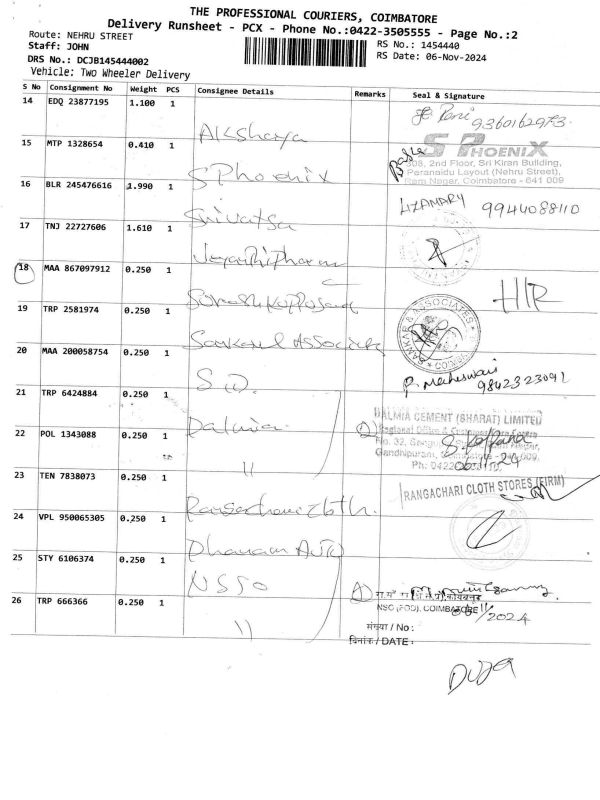 THE PROFESSIONAL COURIERS, COIMBATORE
Delivery Runsheet - PCX - Phone No.:0422-3505555 - Page No.:2
Route: NEHRU STREET
RS No.: 1454440
Staff: JOHN
RS Date: 06-Nov-2024
DRS No.: DCJB145444002
Vehicle: Two Wheeler Delivery
S No Consignment No Weight PCS Consignee Details Remarks Seal & Signature
14 EDQ 23877195 1.100 1 Akshaya 9360162973
15 MTP 1328654 0.410 1 SPhoenix
S PHOENIX
308, 2nd Floor, Sri Kiran Building,
Peranaidu Layout (Nehru Street),
Ram Nagar, Coimbatore - 641 009
16 BLR 245476616 1.990 1 Srivatsa 9944088110
17 TNJ 22727606 1.610 1 Jeyanthi Pharma
18 MAA 867097912 0.250 1
19 TRP 2581974 0.250 1 Sankar & Associates
SANKAR & ASSOCIATES
20 MAA 200058754 0.250 1 P. Maheswari 9842323091
21 TRP 6424884 0.250 1 Dalmia
DALMIA CEMENT (BHARAT) LIMITED
22 POL 1343088 0.250 1 "
23 TEN 7838073 0.250 1 Rangachari Cloth
RANGACHARI CLOTH STORES (FIRM)
24 VPL 950065305 0.250 1 Dhanam Auto
25 STY 6106374 0.250 1 NSSO
26 TRP 666366 0.250 1 "
NSO (FOD), COIMBATORE
11/2024
संख्या / No :
दिनांक / DATE :